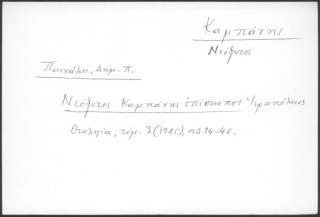 Καμπάνης
Νεόφυτος
Πασχάλης, Δημ. Π.
Νεόφυτος Καμπάνης ἐπίσκοπος Ἱεραπόλεως
Θεολογία, τόμ. 3 (1925), σσ 34-46.